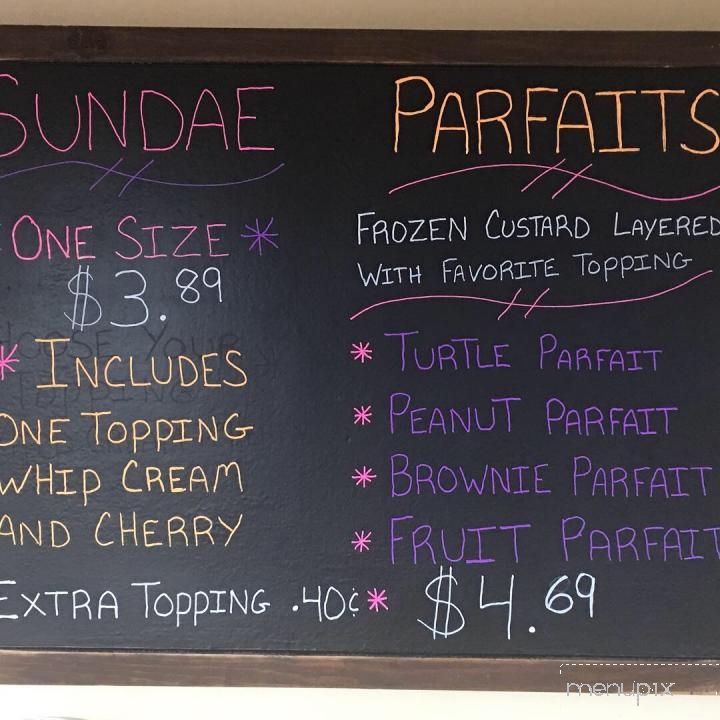 SUNDAE
ONE SIZE *
$3.89
* INCLUDES
ONE TOPPING
WHIP CREAM
AND CHERRY
EXTRA TOPPING .40¢ *
PARFAITS
FROZEN CUSTARD LAYERED
WITH FAVORITE TOPPING
* TURTLE PARFAIT
* PEANUT PARFAIT
* BROWNIE PARFAIT
* FRUIT PARFAIT
$4.69
menupix